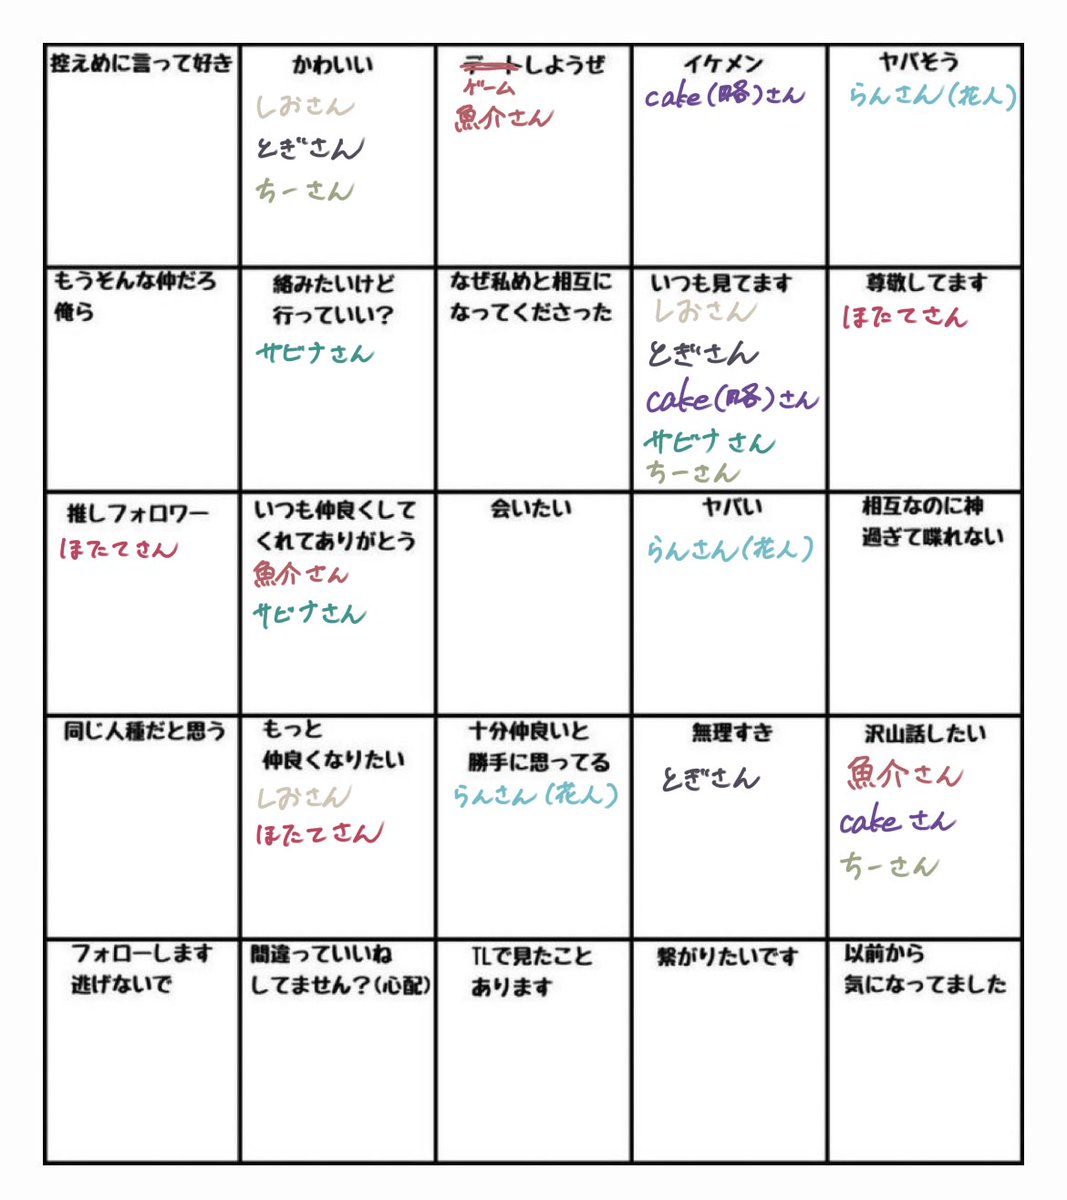 控えめに言って好き
かわいい
しおさん
とぎさん
ちーさん
デートしようぜ
ゲーム
魚介さん
イケメン
cake(略)さん
ヤバそう
らんさん(花人)
もうそんな仲だろ
俺ら
絡みたいけど
行っていい?
サビナさん
なぜ私めと相互に
なってくださった
いつも見てます
しおさん
とぎさん
cake(略)さん
サビナさん
ちーさん
尊敬してます
ほたてさん
推しフォロワー
ほたてさん
いつも仲良くして
くれてありがとう
魚介さん
サビナさん
会いたい
ヤバい
らんさん(花人)
相互なのに神
過ぎて喋れない
同じ人種だと思う
もっと
仲良くなりたい
しおさん
ほたてさん
十分仲良いと
勝手に思ってる
らんさん(花人)
無理すき
とぎさん
沢山話したい
魚介さん
cakeさん
ちーさん
フォローします
逃げないで
間違っていいね
してません?(心配)
TLで見たこと
あります
繋がりたいです
以前から
気になってました